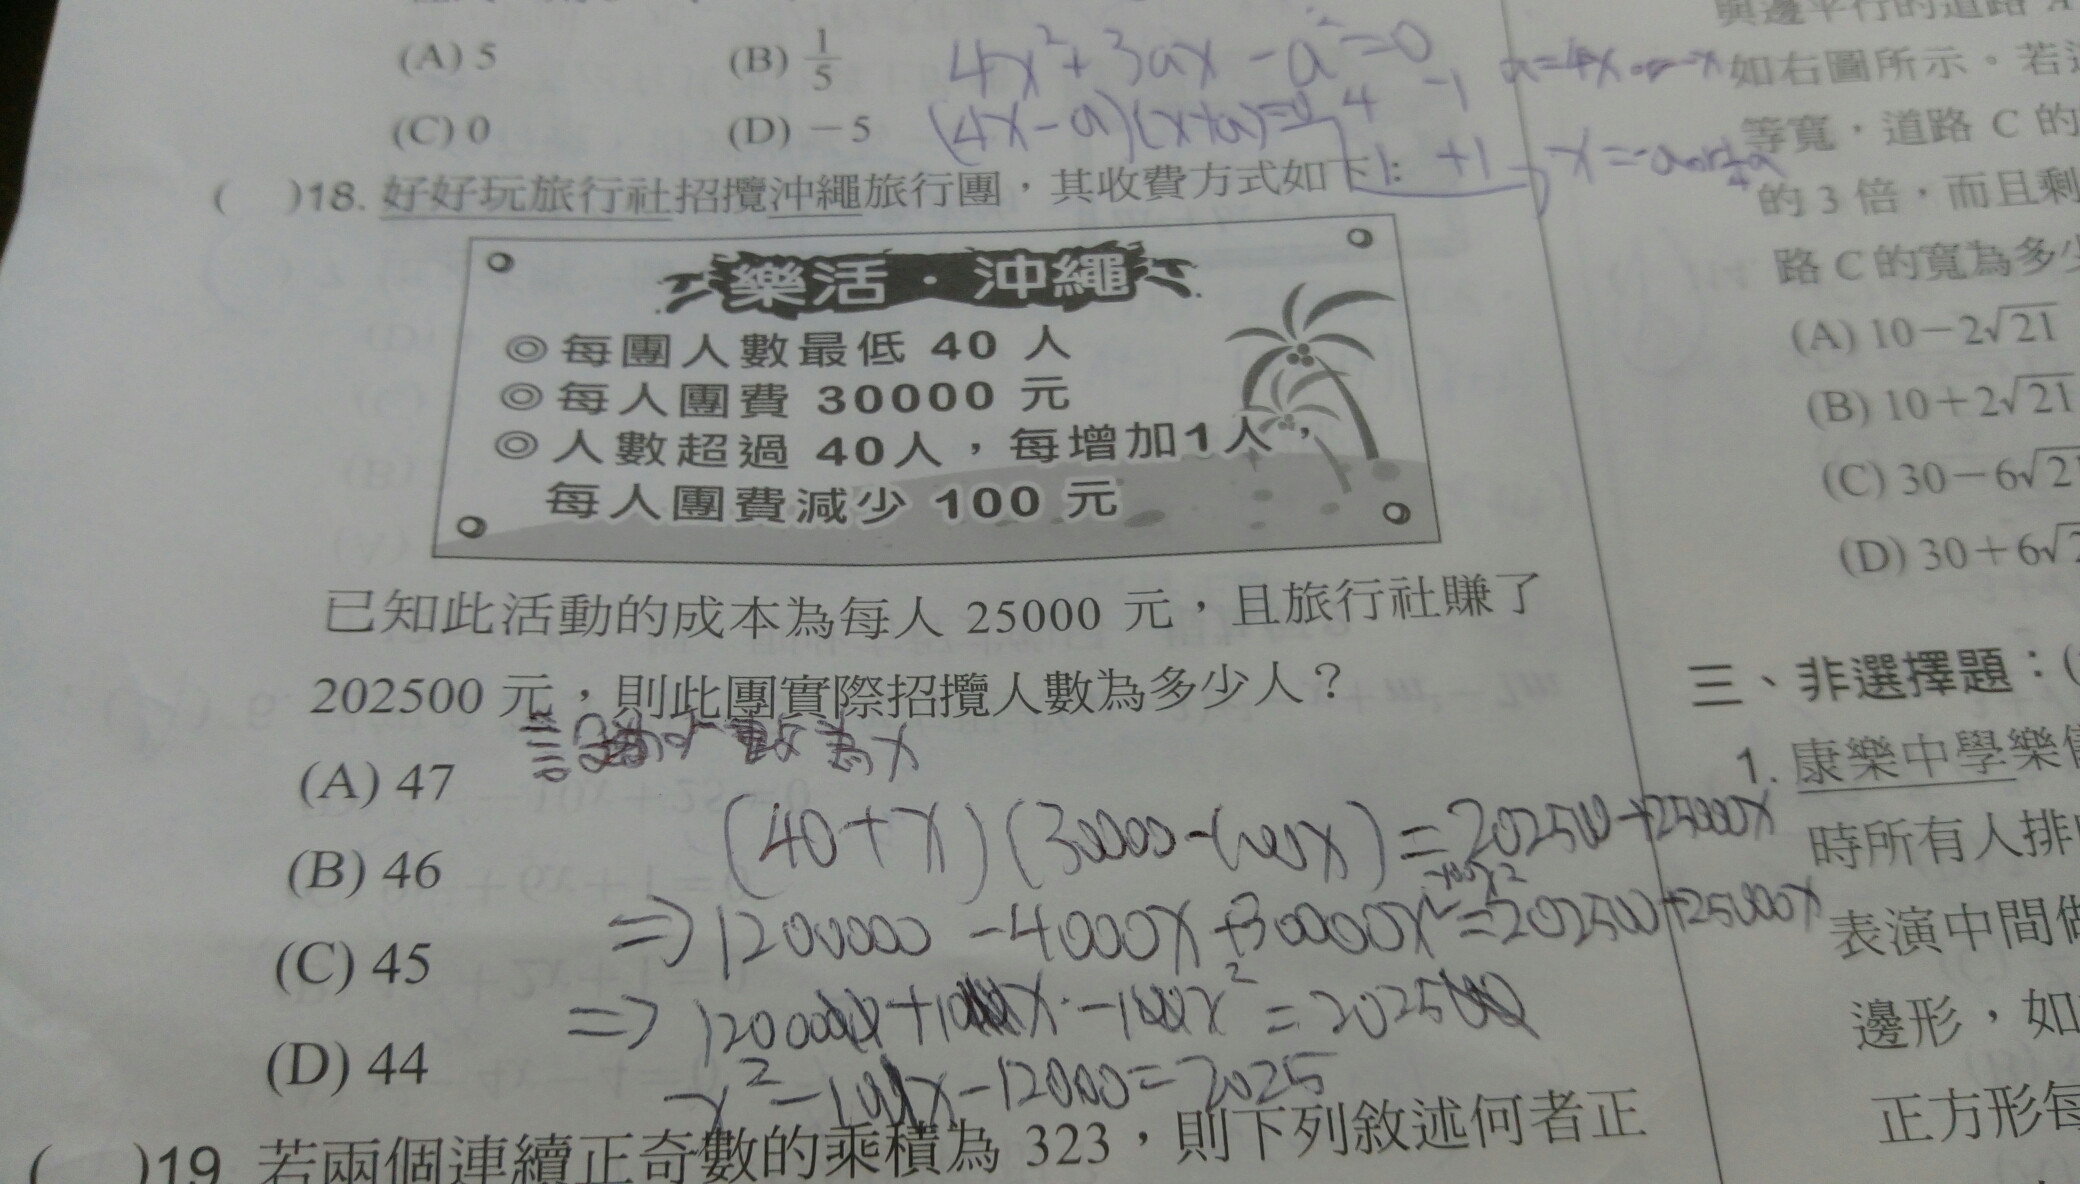 (A) 5
(B) 1/5
(C) 0
(D) －5
4x²+3ax-a²=0
(4x-a)(x+a)=0
4 -1
1 +1
( )18. 好好玩旅行社招攬沖繩旅行團，其收費方式如下：
樂活・沖繩
◎每團人數最低 40 人
◎每人團費 30000 元
◎人數超過 40人，每增加1人，
每人團費減少 100 元
已知此活動的成本為每人 25000 元，且旅行社賺了
202500 元，則此團實際招攬人數為多少人？
(A) 47
(B) 46
(C) 45
(D) 44
(40+x)(30000-100x)=202500+25000x
⇒1200000-4000x+30000x-100x²=202500+25000x
x²-
-12000=2025
( )19. 若兩個連續正奇數的乘積為 323，則下列敘述何者正
與邊平行的道路
如右圖所示。若
等寬，道路 C 的
的 3 倍，而且剩
路 C 的寬為多少
(A) 10－2√21
(B) 10＋2√21
(C) 30－6√2
(D) 30＋6√
三、非選擇題：(
1. 康樂中學樂
時所有人排
表演中間
邊形，如
正方形每